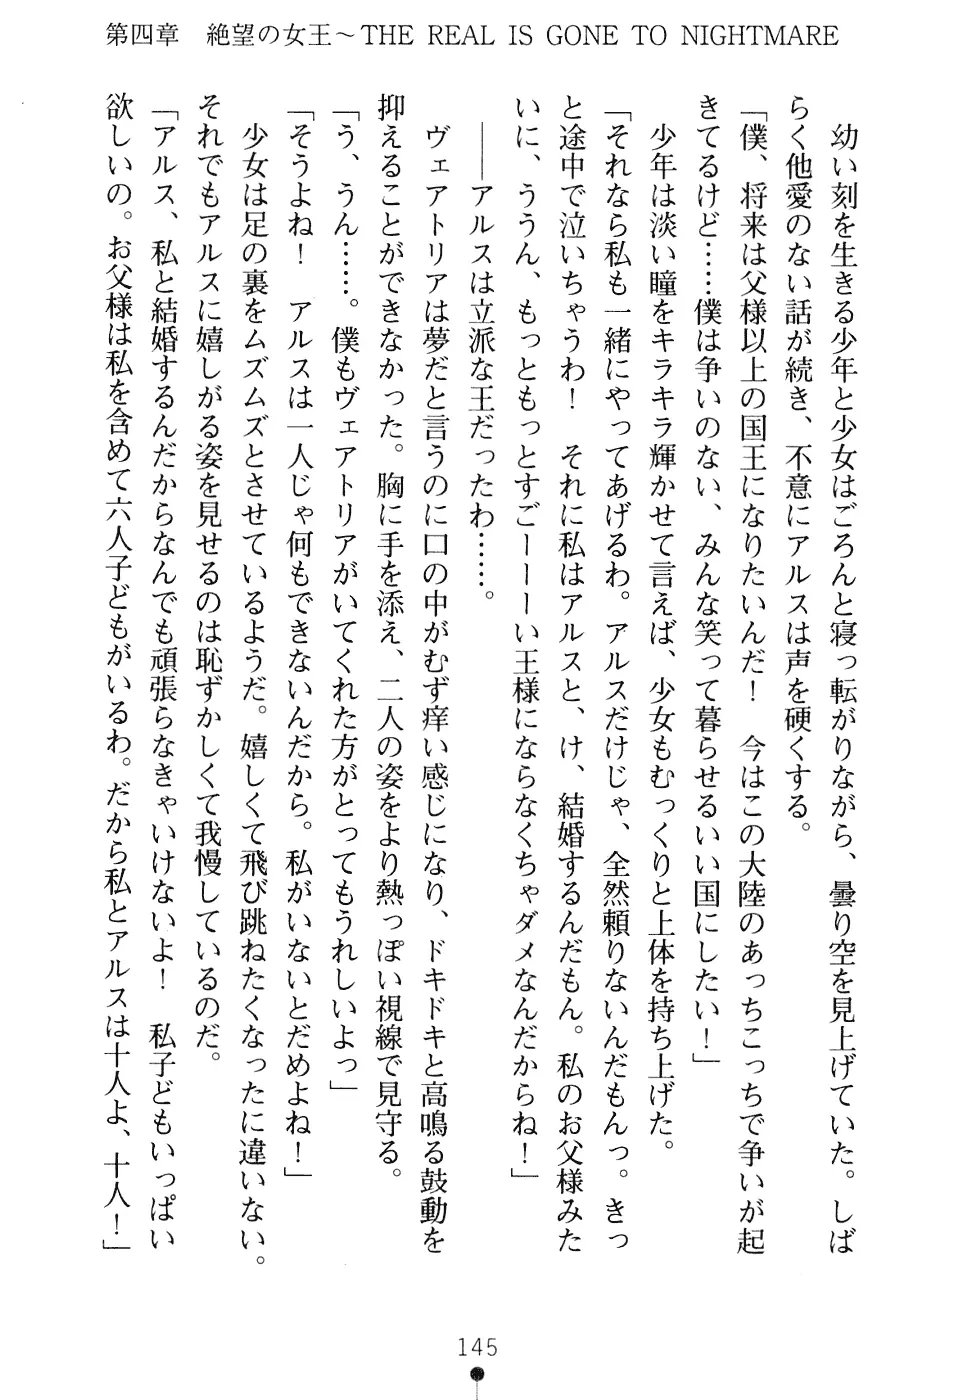 第四章　絶望の女王～THE REAL IS GONE TO NIGHTMARE
　幼い刻を生きる少年と少女はごろんと寝っ転がりながら、曇り空を見上げていた。しば
らく他愛のない話が続き、不意にアルスは声を硬くする。
「僕、将来は父様以上の国王になりたいんだ！　今はこの大陸のあっちこっちで争いが起
きてるけど……僕は争いのない、みんな笑って暮らせるいい国にしたい！」
　少年は淡い瞳をキラキラ輝かせて言えば、少女もむっくりと上体を持ち上げた。
「それなら私も一緒にやってあげるわ。アルスだけじゃ、全然頼りないんだもんっ。きっ
と途中で泣いちゃうわ！　それに私はアルスと、け、結婚するんだもん。私のお父様みた
いに、ううん、もっともっとすごーーーい王様にならなくちゃダメなんだからね！」
　――アルスは立派な王だったわ……。
　ヴェアトリアは夢だと言うのに口の中がむず痒い感じになり、ドキドキと高鳴る鼓動を
抑えることができなかった。胸に手を添え、二人の姿をより熱っぽい視線で見守る。
「う、うん……。僕もヴェアトリアがいてくれた方がとってもうれしいよっ」
「そうよね！　アルスは一人じゃ何もできないんだから。私がいないとだめよね！」
　少女は足の裏をムズムズとさせているようだ。嬉しくて飛び跳ねたくなったに違いない。
それでもアルスに嬉しがる姿を見せるのは恥ずかしくて我慢しているのだ。
「アルス、私と結婚するんだからなんでも頑張らなきゃいけないよ！　私子どもいっぱい
欲しいの。お父様は私を含めて六人子どもがいるわ。だから私とアルスは十人よ、十人！」
145